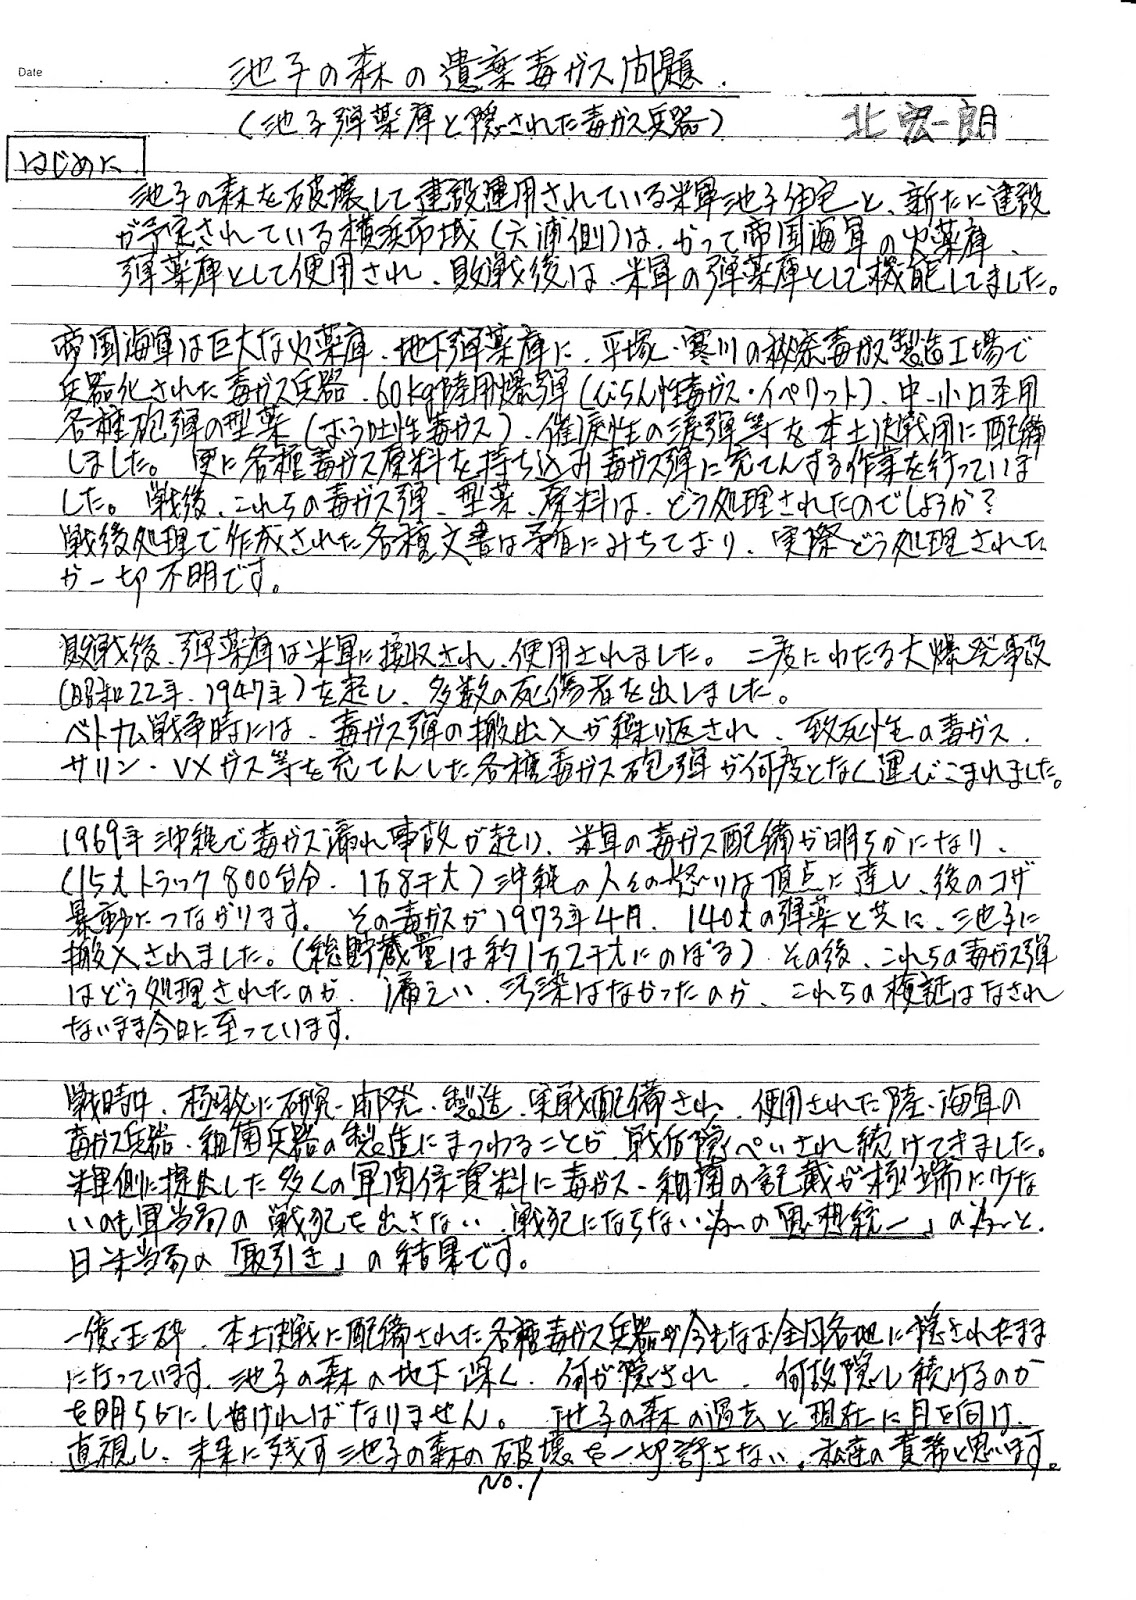 Date
池子の森の遺棄毒ガス問題.
(池子弾薬庫と隠された毒ガス兵器)
北宏一朗
はじめに
池子の森を破壊して建設運用されている米軍池子住宅と、新たに建設
が予定されている横浜市域(六浦側)は、かって帝国海軍の火薬庫、
弾薬庫として使用され、敗戦後は、米軍の弾薬庫として機能してました。
帝国海軍は巨大な火薬庫、地下弾薬庫に、平塚・寒川の秘密毒ガス製造工場で
兵器化された毒ガス兵器、60kg陸用爆弾(びらん性毒ガス・イペリット)、中・小口径用
各種砲弾の型薬(おう吐性毒ガス)、催涙性の涙弾等を本土決戦用に配備
しました。更に各種毒ガス原料を持ち込み毒ガス弾に充てんする作業を行っていま
した。戦後、これらの毒ガス弾、型薬、原料は、どう処理されたのでしょうか?
戦後処理で作成された各種文書は矛盾にみちており、実際どう処理された
か一切不明です。
敗戦後、弾薬庫は米軍に接収され、使用されました。二度にわたる大爆発事故
(昭和22年、1947年)を起し、多数の死傷者を出しました。
ベトナム戦争時には、毒ガス弾の搬出入が繰り返され、致死性の毒ガス、
サリン・VXガス等を充てんした各種毒ガス砲弾が何度となく運びこまれました。
1969年沖縄で毒ガス漏れ事故が起り、米軍の毒ガス配備が明らかになり、
(15tトラック800台分、1万8千t)沖縄の人々の怒りは頂点に達し、後のコザ
暴動につながります。その毒ガスが1973年4月、140tの弾薬と共に、池子に
搬入されました。(総貯蔵量は約1万2千tにのぼる)その後、これらの毒ガス弾
はどう処理されたのか、漏えい、汚染はなかったのか、これらの検証はなされ
ないまま今日に至っています.
戦時中、極秘に研究・開発・製造、実戦配備され、使用された陸・海軍の
毒ガス兵器・細菌兵器の製造にまつわることが、戦后隠ぺいされ続けてきました。
米軍側に提出した多くの軍関係資料に毒ガス・細菌の記載が極端に少な
いのも軍当局の「戦犯を出さない、戦犯にならない為の思想統一」の為と、
日米当局の「取引き」の結果です。
一億玉砕、本土決戦に配備された各種毒ガス兵器が今もなお全国各地に隠されたまま
になっています。池子の森の地下深く、何が隠され、何故隠し続けるのか
を明らかにしなければなりません。池子の森の過去と現在に目を向け、
直視し、未来に残す池子の森の破壊を一切許さない、私達の責務と思います。
No.1